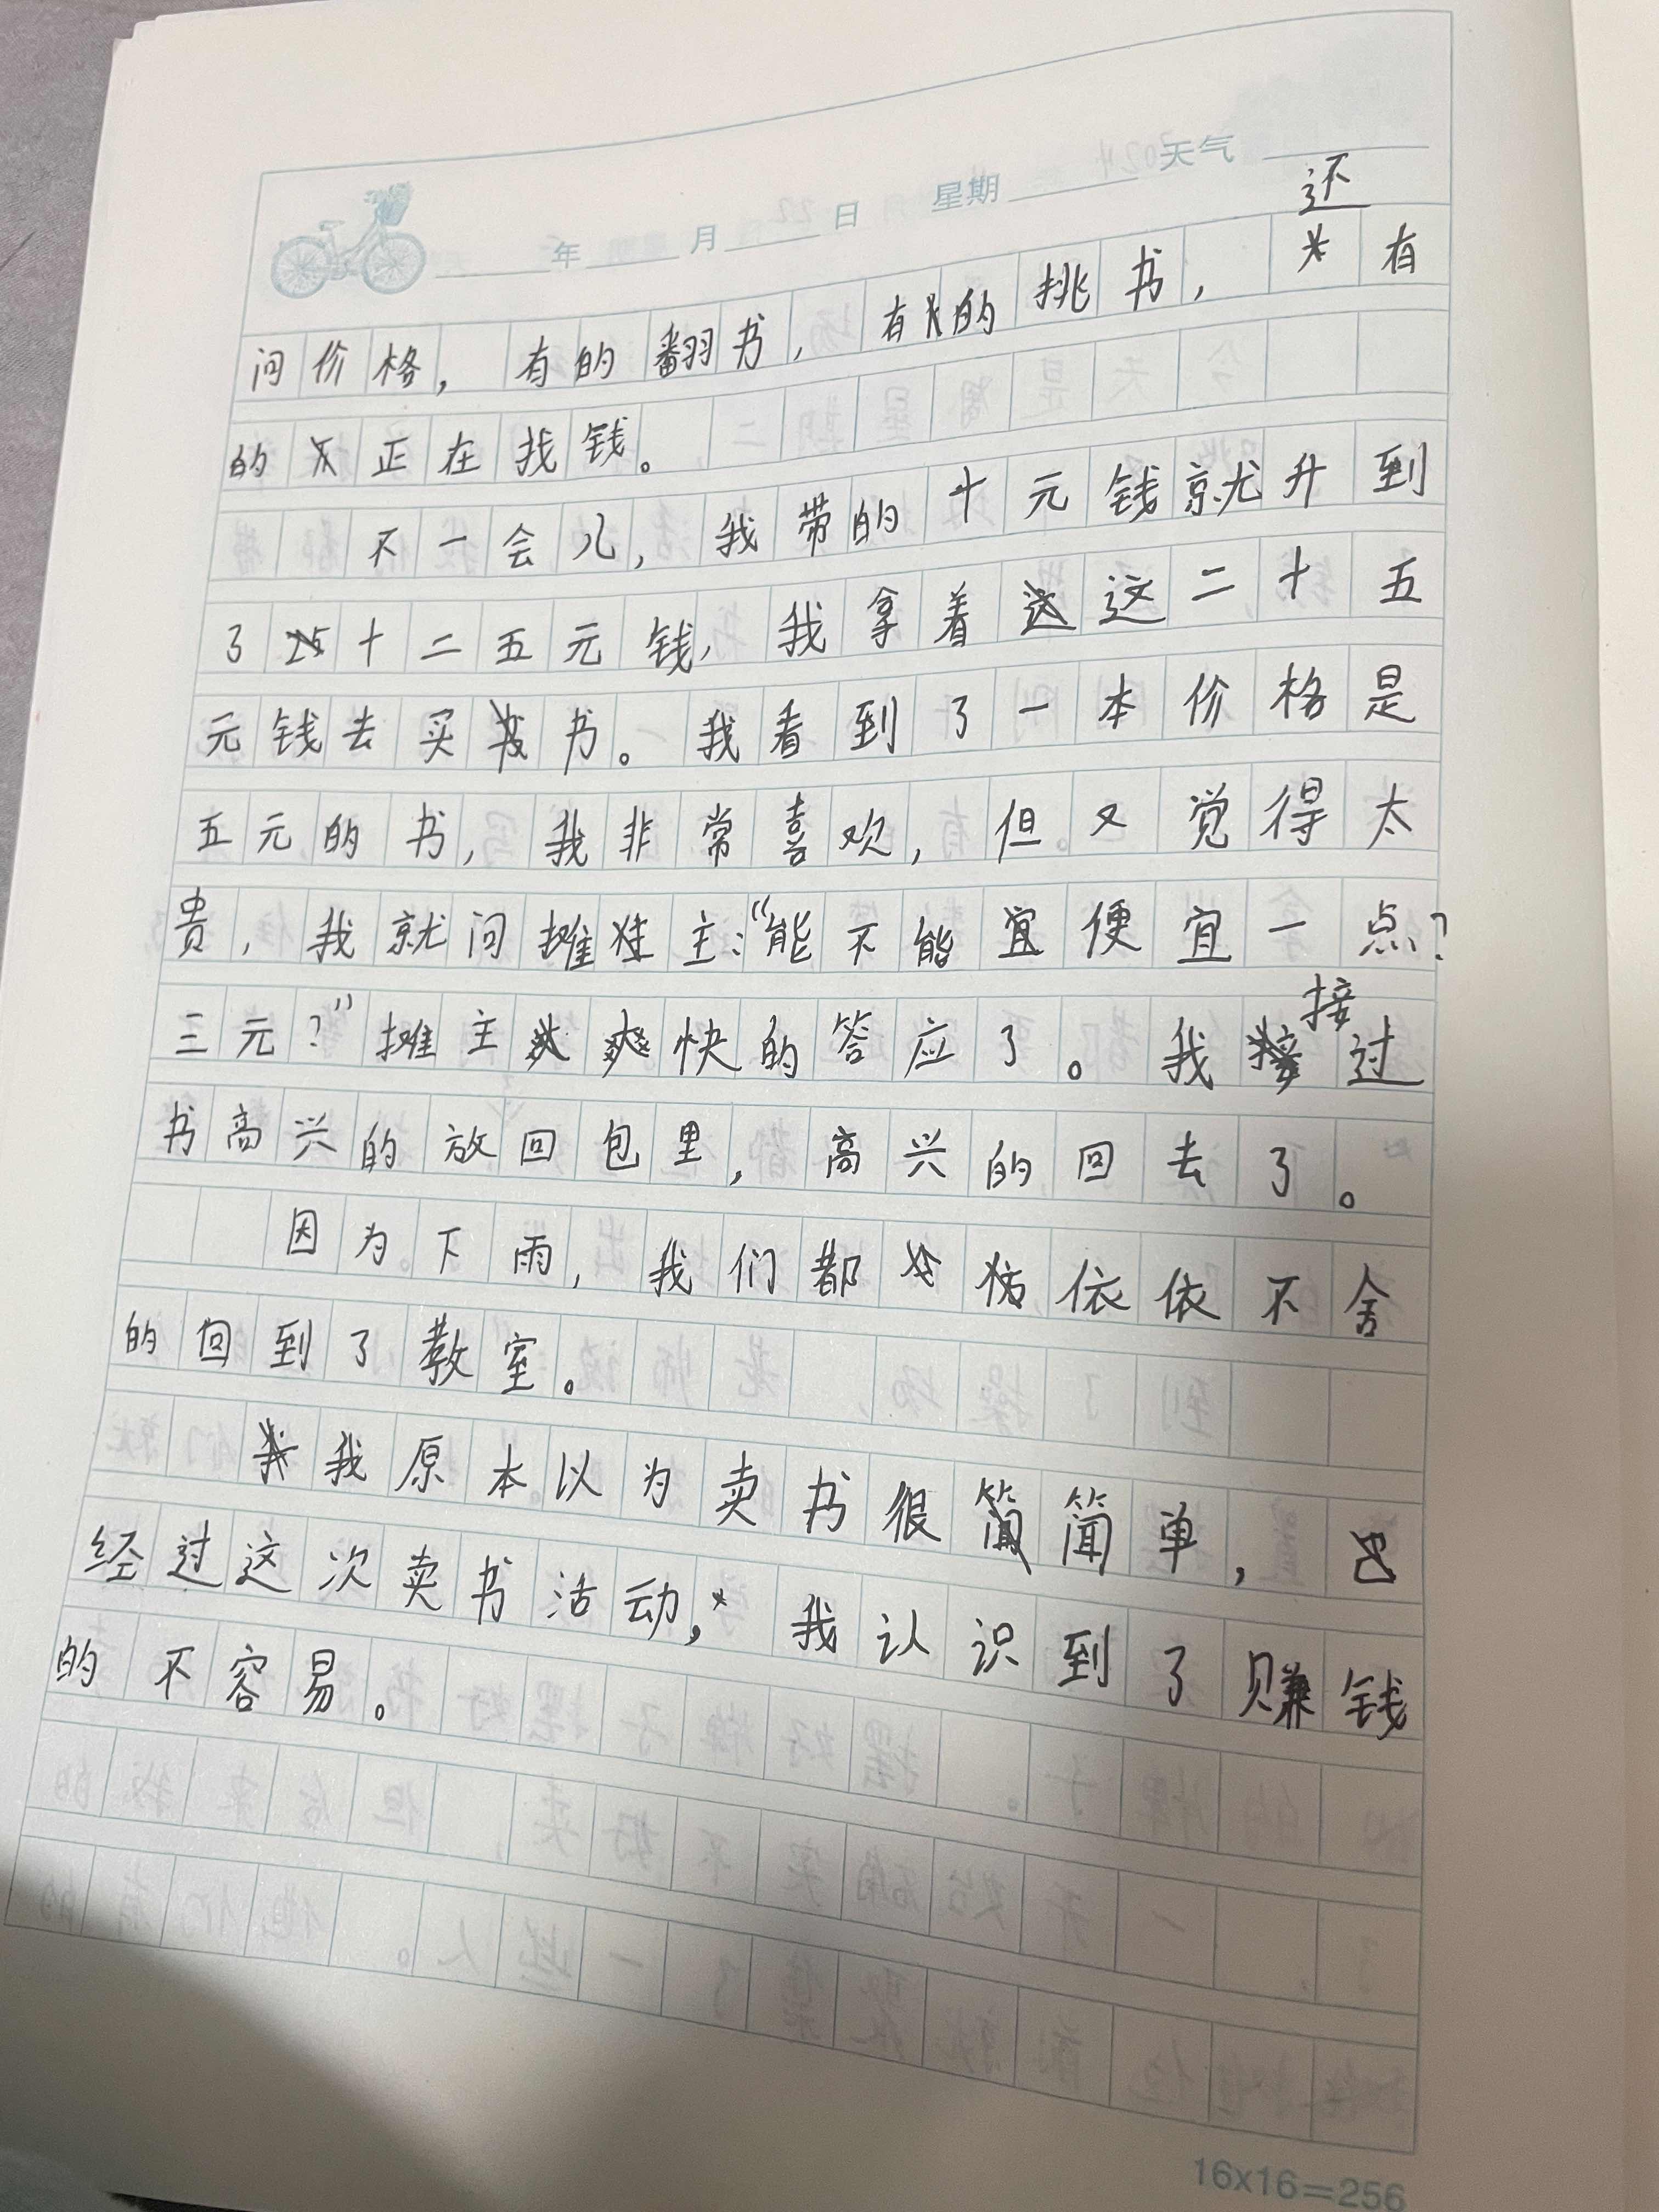 年 月 日 星期 天气
还
问价格，有的翻书，有的挑书，有
的正在找钱。
不一会儿，我带的十元钱就升到
了十二五元钱，我拿着这二十五
元钱去买书。我看到了一本价格是
五元的书，我非常喜欢，但又觉得太
贵，我就问摊主：“能不能便宜一点？
三元？”摊主爽快的答应了。我接过
书高兴的放回包里，高兴的回去了。
因为下雨，我们都依依不舍
的回到了教室。
我原本以为卖书很简单，
经过这次卖书活动，我认识到了赚钱
的不容易。
16x16=256